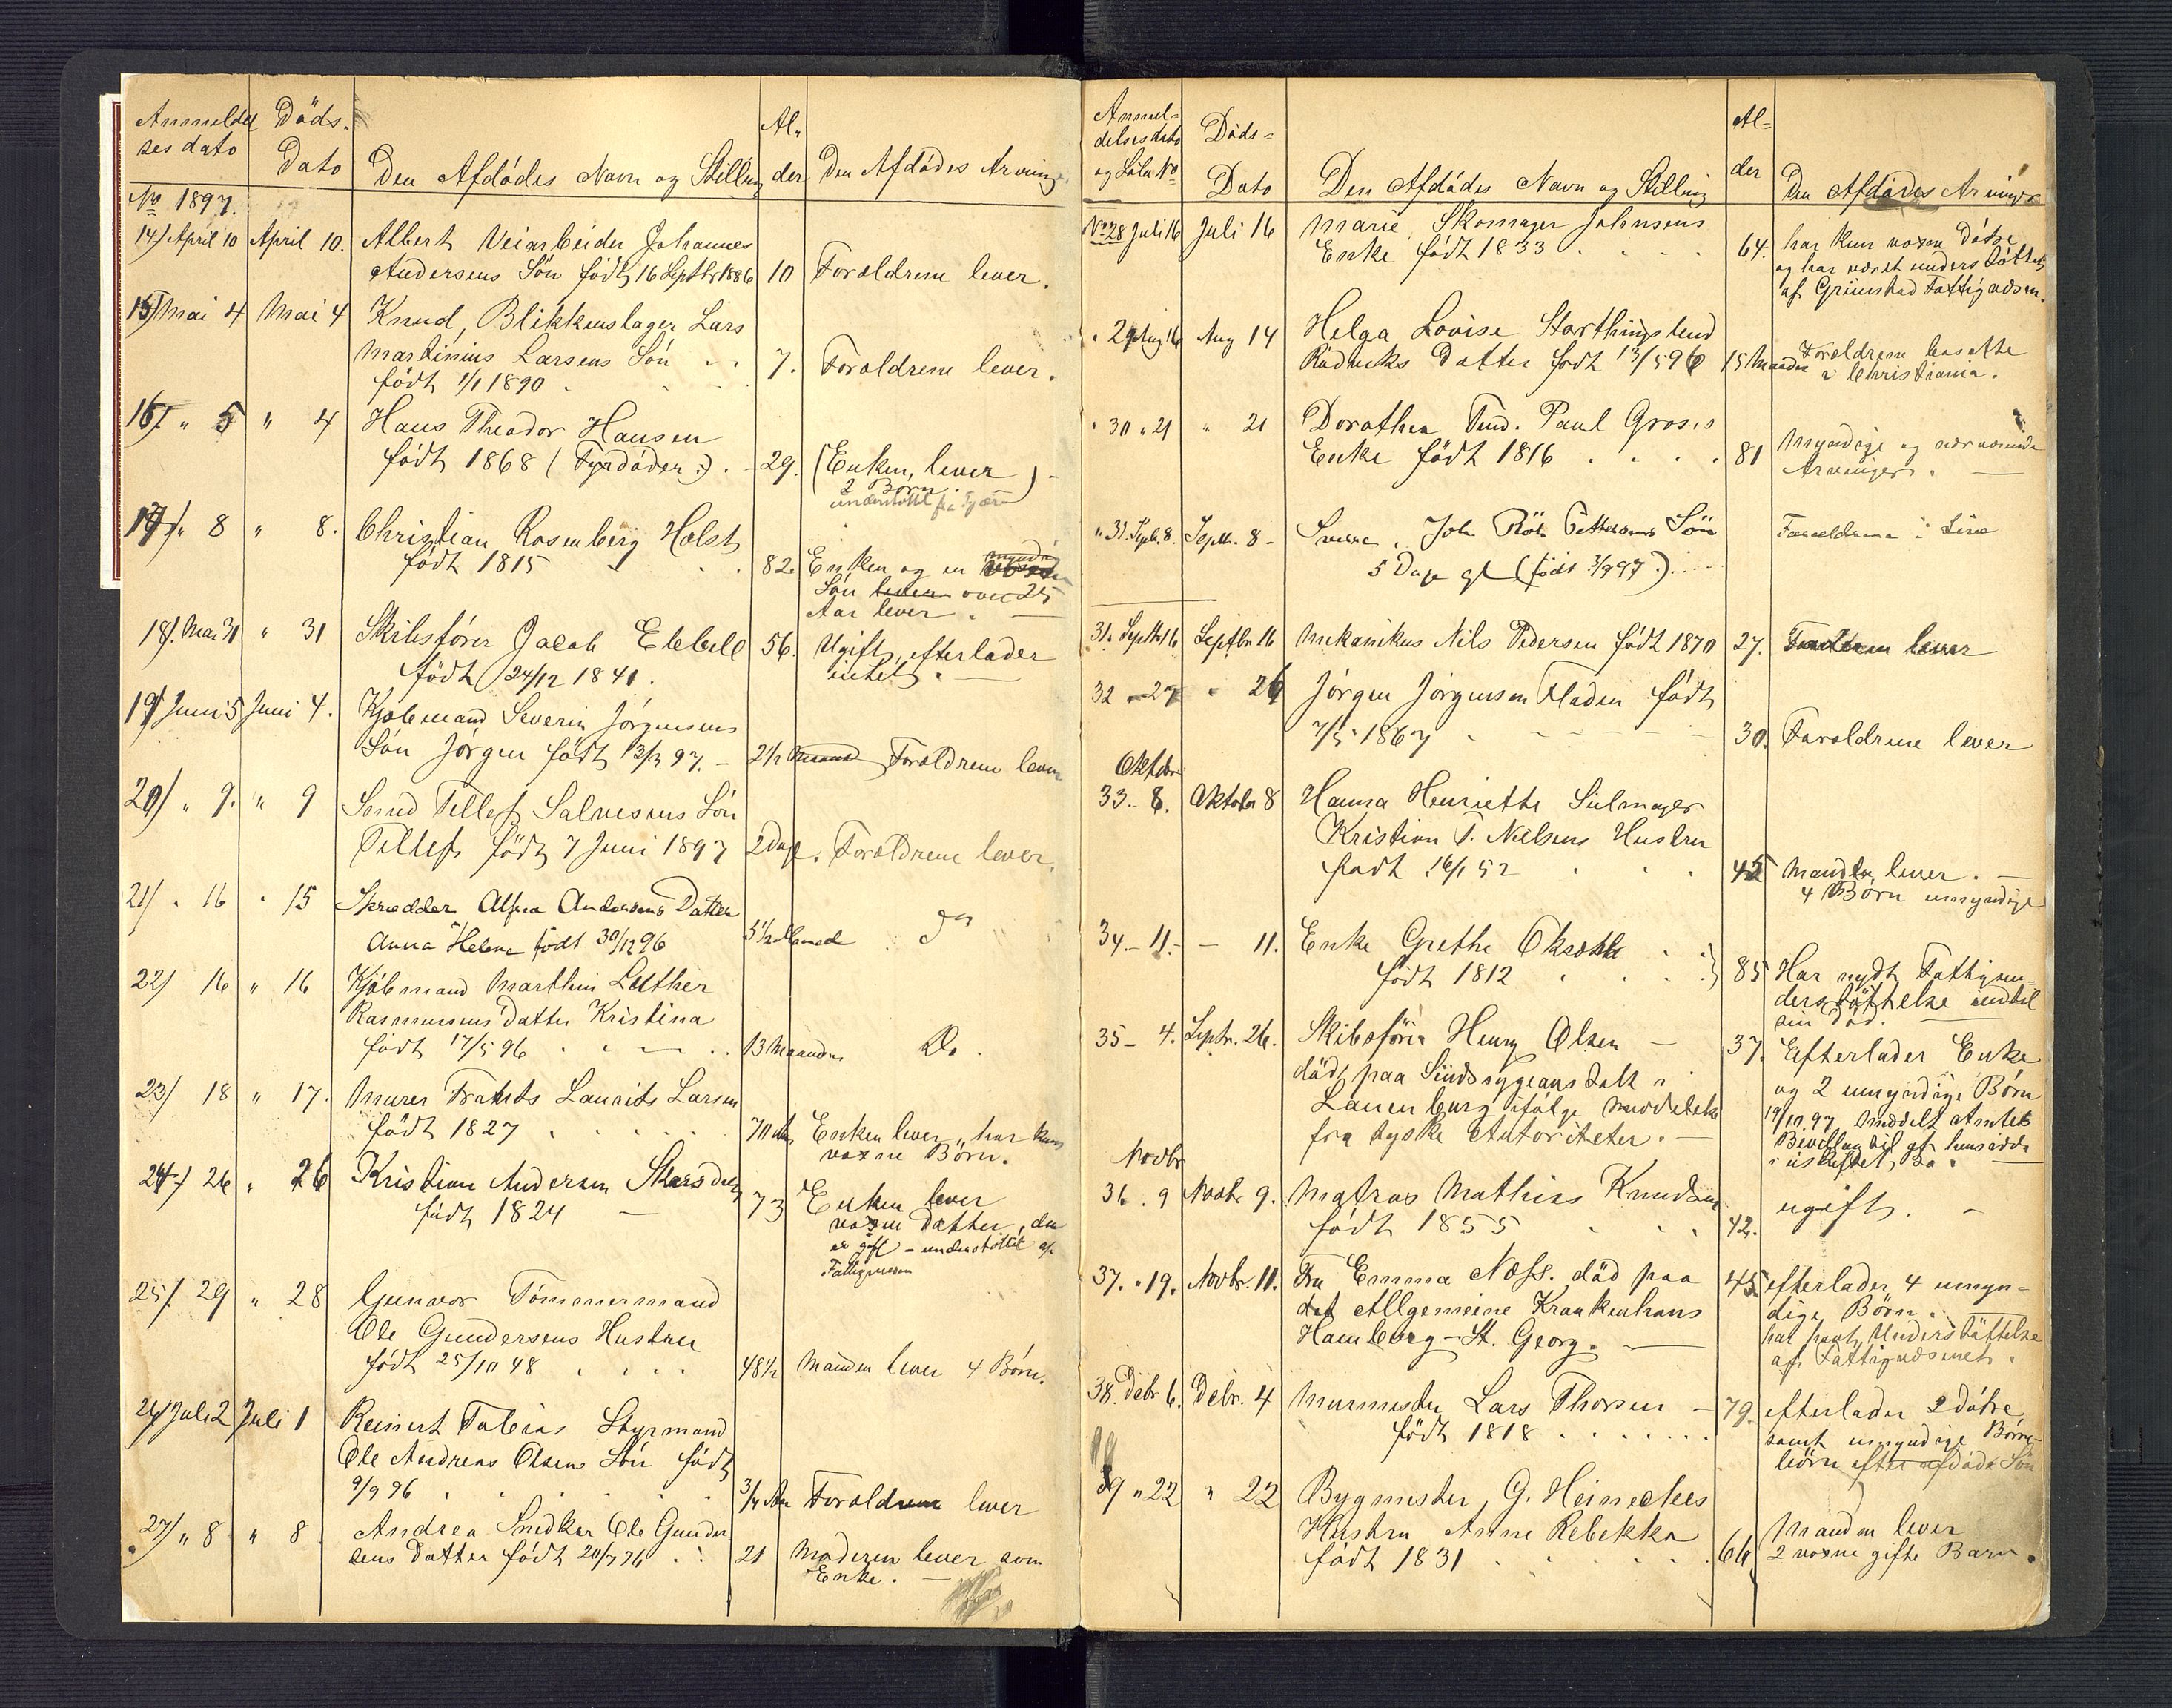 Anmeldel Döds-
ses dato Dato Den Afdödes Navn og Stilling Al- der Den Afdödes Arving
No 1897.
14) April 10 April 10. Albert Veiarbeider Johannes
Andersens Sön födt 16 Septbr 1886 10 Forældrene lever.
15) Mai 4 Mai 4 Knud, Blikkenslager Lars
Martinius Larsens Sön 7. Forældrene lever.
födt 1/1 1890
16) " 5 " 4 Hans Theodor Hansen
födt 1868 (Fyrböder.) 29. (Enken, lever
2 Börn.)
understöttet fra
17) " 8 " 8. Christian Rosenberg Holst
födt 1815 82. Enken og en myndig
Sön over 25
Aar lever.
18) Mai 31 " 31 Skibsförer Jacob Ebbell 56. Ugift, efterlader
födt 24/12 1841. intet.
19) Juni 5 Juni 4. Kjöbmand Severin Jörgensens
Sön Jörgen födt 13/3 97. 2 1/2 Maaned Forældrene lever
20) " 9. " 9 Smed Tellef Salvesens Sön
Tellef födt 7 Juni 1897 2 Dage. Forældrene lever.
21) " 16 " 15 Skrædder Andersens Datter
Anna Helene födt 30/12 96 5 1/2 Maaned do
22) 16 " 16 Kjöbmand Marthin Luther
Rasmussens Datter Kristina
födt 17/5 96 13 Maaneder Do.
23) 18 " 17. Murer Frants Laurits Larsen
födt 1827 70 Aar Enken lever, har kun
voxne Börn.
24) 26 " 26 Kristian Andersen
födt 1824 73 Enken lever
voxen Datter, der
er gift - understöttet af
Fattigvæsen
25) 29 " 28 Gunvor Tömmermand
Ole Gundersens Hustru
födt 25/10 48 48 1/2 Manden lever 4 Börn.
26) Juli 2 Juli 1 Reinert Tobias Styrmand
Ole Andreas Olsens Sön födt
9/9 96 3/4 Aar Forældrene lever
27) " 8 " 8 Andrea Snedker Ole Gunder
sens Datter födt 20/7 76 21 Moderen lever som
Enke.
Anmel-
delsesdato
og Löbe No Döds-
Dato Den Afdödes Navn og Stilling Al-
der Den Afdödes Arvinger
No 28 Juli 16 Juli 16 Marie, Skomager Johnsens
Enke födt 1833 64. har kun voxne Dötre
og har været understöttet
af Grimstad Fattigvæsen.
" 29 Aug 16 Aug 14 Helga Lovise Storthingsbud
Datter födt 13/5 96 15 Maaneder Forældrene bosatte
i Christiania.
" 30 " 21 " 21 Dorothea Paul Groses
Enke födt 1816 81 Myndige og nærværende
Arvinger.
" 31. Septb. 8. Septb. 8 - Sverre, Joh. Pettersens Sön
5 Dage gl (födt 3/9 97.) Forældrene i Live
31. Septbr 16 Septbr 16 Mekanikus Nils Pedersen födt 1870 27. lever
32 - 27 " 26 Jörgen Jörgensen Fladen födt
7/5 1867 30. Forældrene lever
Oktbr
33 - 8. Oktobr 8 Hanna Henriette Seilmager
Kristian T. Nielsens Hustru
födt 16/1 52 45 Manden lever.
4 Börn umyndige
34 - 11. - 11. Enke Grethe
födt 1812 85 Har nydt Fattigun-
derstöttelse indtil
sin Död.
35 - 4. Septr. 26. Skibsförer Henry Olsen 37. Efterlader Enke
död paa Sindssygeanstalt i og 2 umyndige Börn
Lauenburg ifölge meddelelse 19/10.97 meddelt Amtets
fra tyske Autoriteter. Bevilling til at hensidde
i uskiftet Bo.
Novbr
36. 9 Novbr 9. Matros Mathias Knudsen ugift.
födt 1855 42.
37. " 19. Novbr. 11. Fru Emma Næss. död paa 45. efterlader 4 umyn-
det Allgemeine Krankenhaus dige Börn.
Hamburg - St. Georg. har havt Understöttelse
af Fattigvæsenet.
38. Debr 6. Debr. 4 Murmester Lars Thorsen 79. efterlader 2 dötre
födt 1818 samt umyndige Börne-
börn efter afdöde Sön
39 " 22 " 22 Bygmester, G. Heineckes
Hustru Anne Rebekka Manden lever
födt 1831 66 2 voxne gifte Barn.